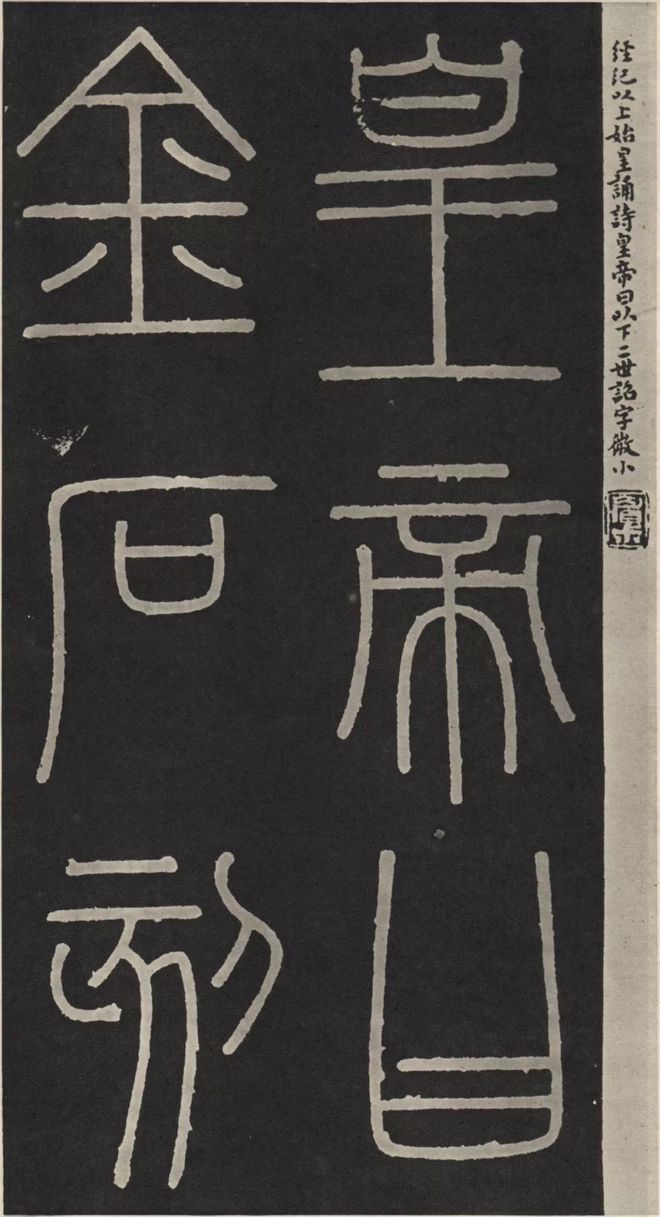 經紀以上始皇誦詩皇帝曰以下二世詔字微小
皇帝曰
金石刻